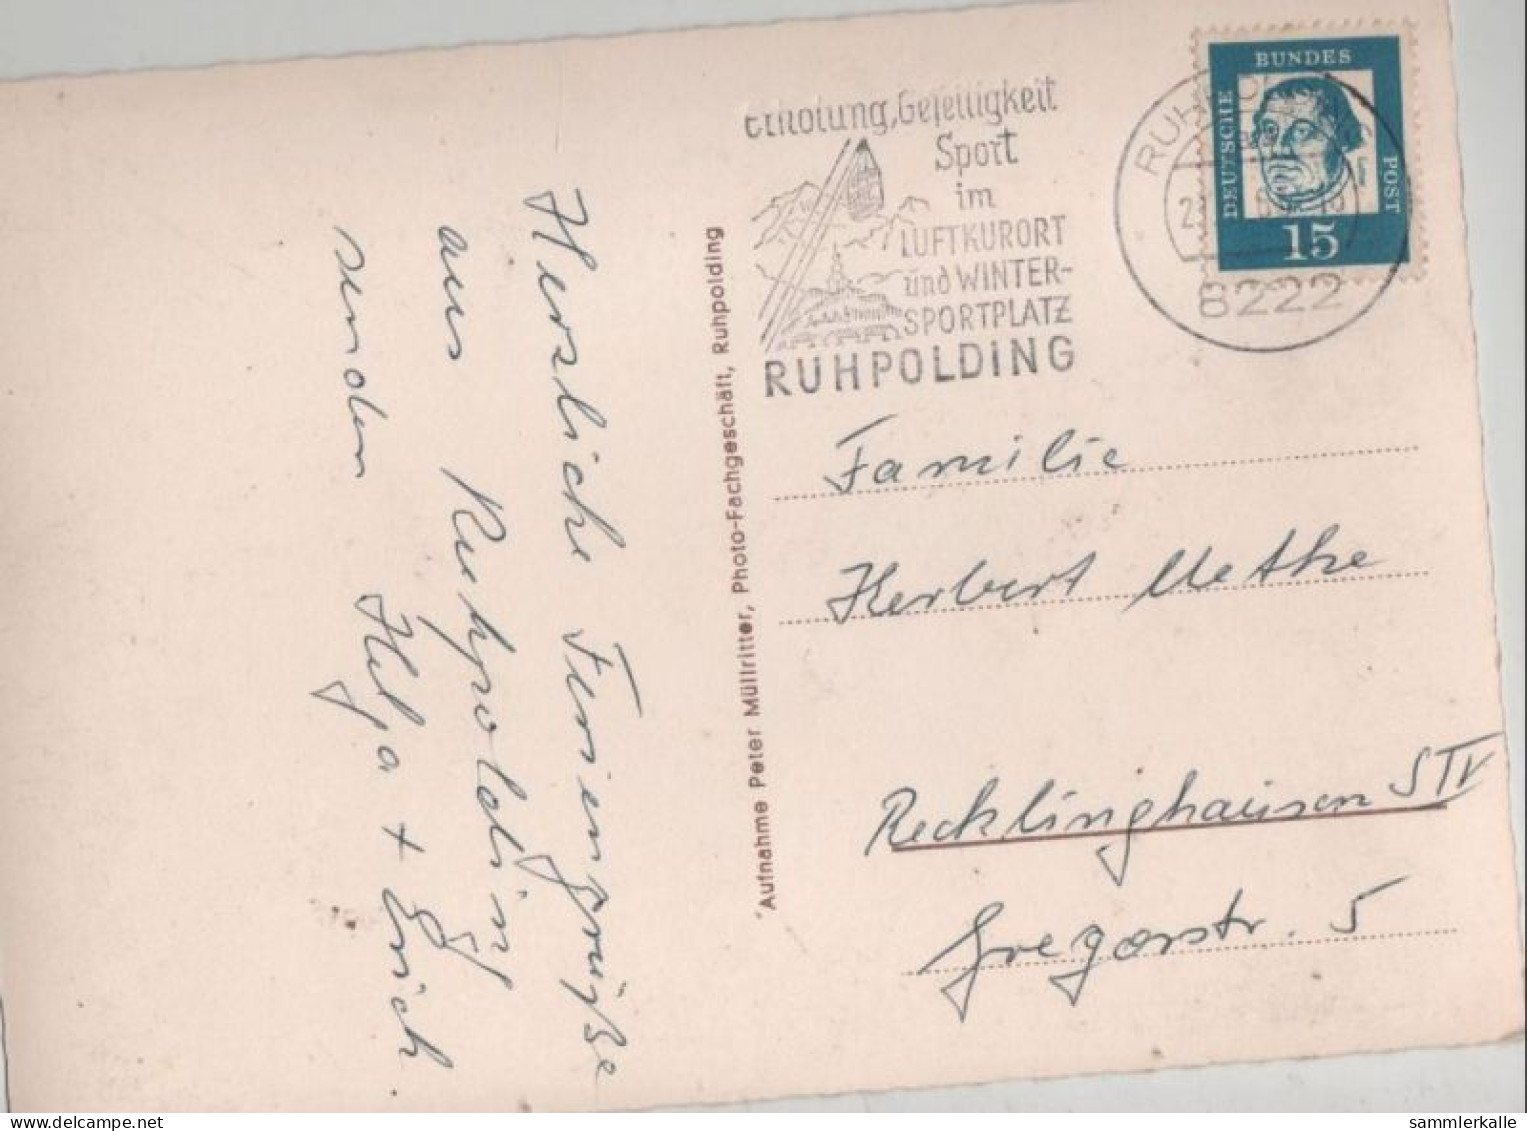 Erholung, Geselligkeit
Sport
im
LUFTKURORT
und WINTER-
SPORTPLATZ
RUHPOLDING
8222
DEUTSCHE
BUNDES
POST
15
Herzliche Feriengrüße
aus Ruhpolding
senden Helga + Erich.
Aufnahme Peter Müllritter, Photo-Fachgeschäft, Ruhpolding
Familie
Herbert Methe
Recklinghausen S IV
Gregorstr. 5
sammlerkalle